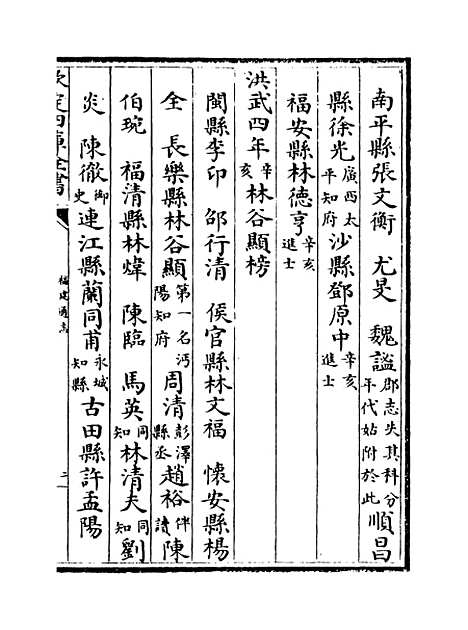 南平縣張文衡　尤旻　魏謐郡志失其科分年代姑附於此順昌
縣徐光廣西太平知府沙縣鄧原中辛亥進士
福安縣林德亨辛亥進士
洪武四年辛亥林谷顯榜
閩縣李印　邵行清　侯官縣林文福　懷安縣楊
全　長樂縣林谷顯第一名沔陽知府周清彭澤縣丞趙裕伴讀陳
伯琬　福清縣林煒　陳臨　馬英同知林清夫同知劉
炎　陳徹御史連江縣蘭同甫永城知縣古田縣許孟陽
欽定四庫全書
福建通志